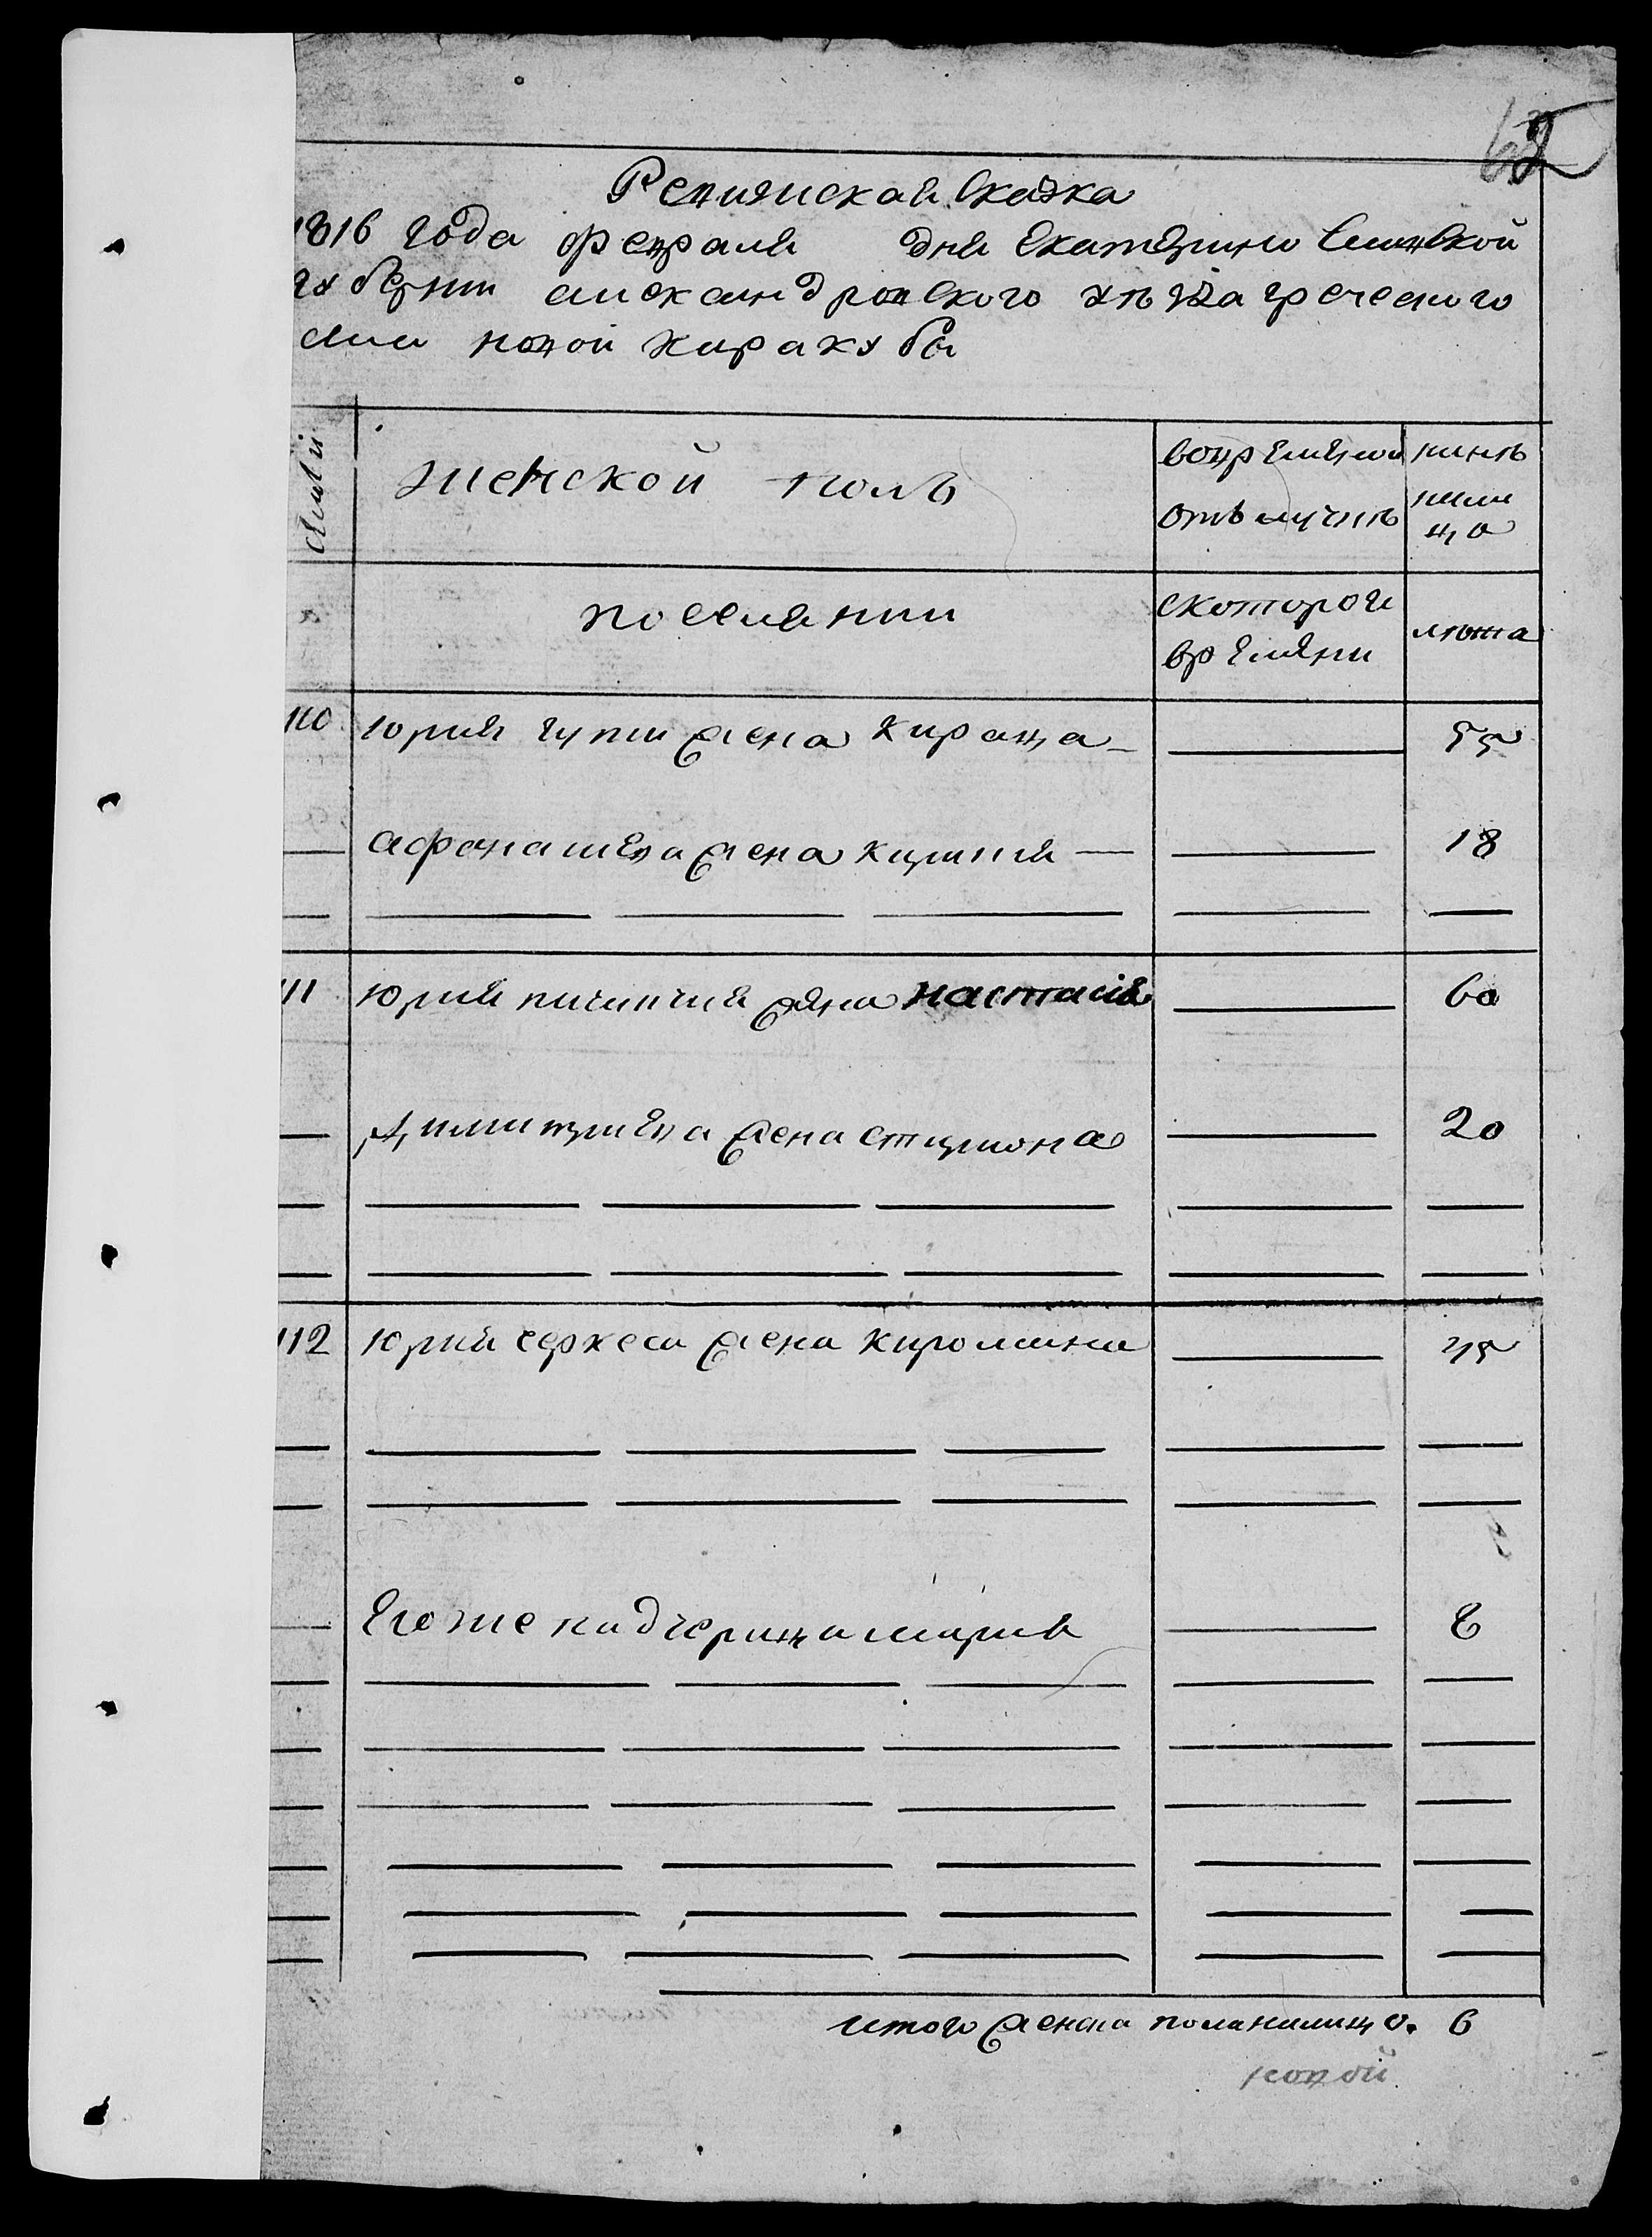 62
Ревизиская Скаска
1816 года февраля дня Екатерино Славской
губернии александровского уезда греческого
села новой каракубы
семьи
женской полъ
вовремянной
отълучкъ
нинъ
нали
цо
поселянии
скоторога
времяни
лѣта
110 Юрия чупи жена Кираца — 55
афанасиева жена Кирикия — 18
111 Юрия пичинчия жена настасия — 60
Димитриева жена стириона — 20
112 Юрия черкеса жена Кироманы — 45
Его же падчерица мария — 8
итого женска пола налицо. 6
новой